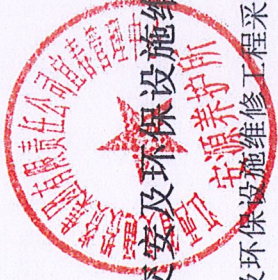 安及环保设施维
及环保设施维修工程采
有限责任公司宜春管理
安源养护所